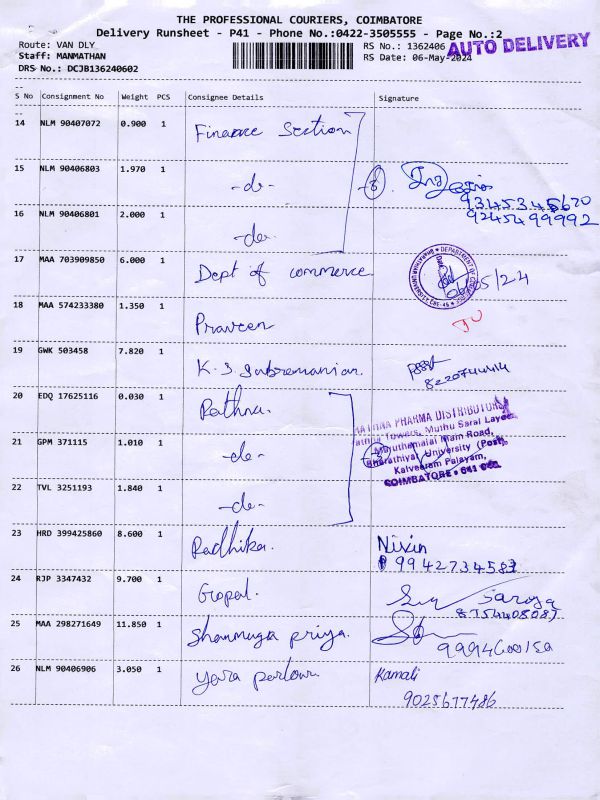 THE PROFESSIONAL COURIERS, COIMBATORE
Delivery Runsheet - P41 - Phone No.:0422-3505555 - Page No.:2
Route: VAN DLY
Staff: MANMATHAN
DRS No.: DCJB136240602
RS No.: 1362406
RS Date: 06-May-2024
AUTO DELIVERY
S No Consignment No Weight PCS Consignee Details Signature
14 NLM 90407072 0.900 1 Finance Section
15 NLM 90406803 1.970 1 -do- -3
9345345670
9245499992
16 NLM 90406801 2.000 1 -do-
17 MAA 703909850 6.000 1 Dept of commerce
18 MAA 574233380 1.350 1 Praveen
19 GWK 503458 7.820 1 K.S. Subramanian.
8220744414
20 EDQ 17625116 0.030 1 Rathna.
RATHNA PHARMA DISTRIBUTORS
Rathna Towers, Muthu Saral Layout
Maruthamalai Main Road,
Bharathiyar University (Post),
Kalveeram Palayam,
COIMBATORE - 641 046.
21 GPM 371115 1.010 1 -do- -3
22 TVL 3251193 1.840 1 -do-
23 HRD 399425860 8.600 1 Radhika. Nixin
9942734583
24 RJP 3347432 9.700 1 Gopal. Saroja
8754408087
25 MAA 298271649 11.850 1 Shanmuga priya.
26 NLM 90406906 3.050 1 yara parlour. Kamali
9025677486